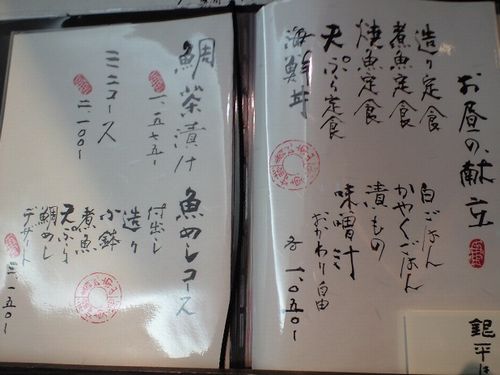 お昼の献立
造り定食
煮魚定食
焼魚定食
天ぷら定食
海鮮丼
白ごはん
かやくごはん
漬もの
味噌汁
おかわり自由
各 一〇五〇ー
銀平は
鯛茶漬け
一、五七五ー
ミニコース
二、一〇〇ー
魚めしコース
付出し
造り
小鉢
煮魚
天ぷら
鯛めし
デザート
三一五〇ー